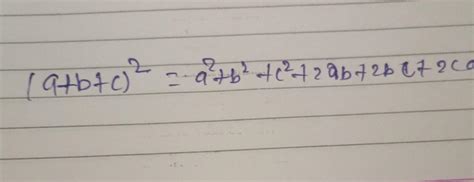 (a+b+c)² = a²+b²+c²+2ab+2bc+2ca